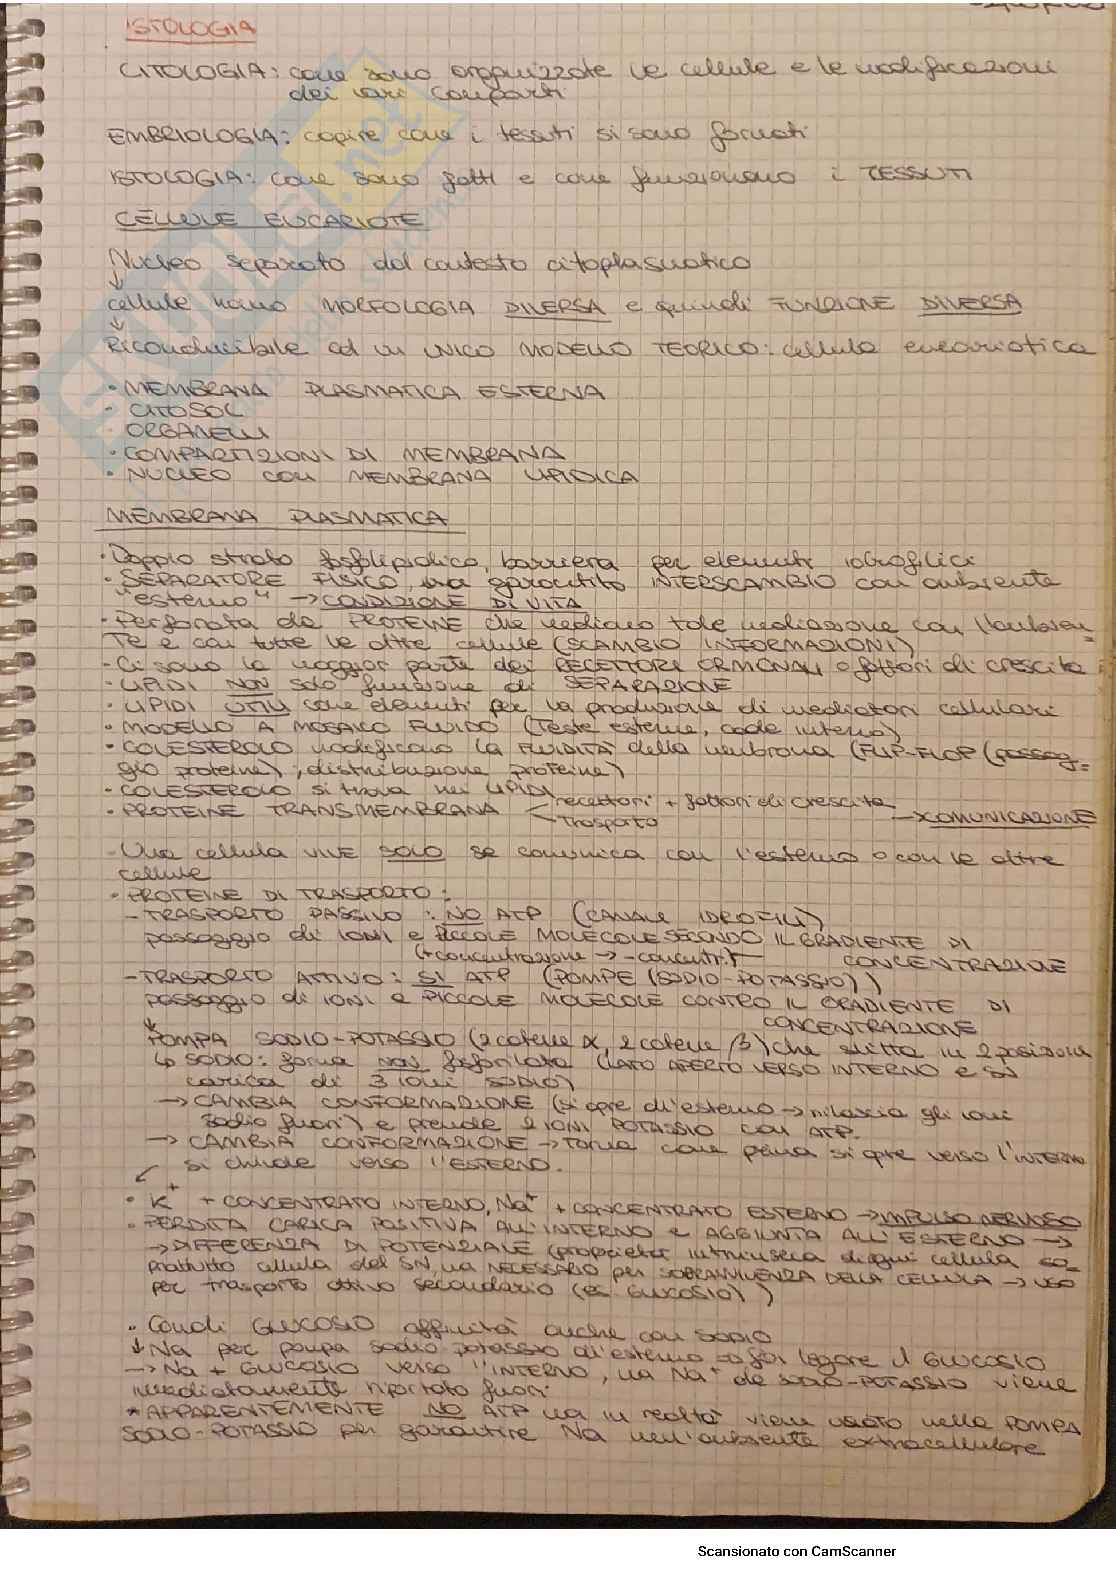 ISTOLOGIA
CITOLOGIA: come sono organizzate le cellule e le modificazioni
dei vari comparti
EMBRIOLOGIA: capire come i tessuti si sono formati
ISTOLOGIA: come sono fatti e come funzionano i TESSUTI
CELLULE EUCARIOTE
Nucleo separato dal contesto citoplasmatico
↓
cellule hanno MORFOLOGIA DIVERSA e quindi FUNZIONE DIVERSA
↓
Riconducibile ad un UNICO MODELLO TEORICO: cellula eucariotica
• MEMBRANA PLASMATICA ESTERNA
• CITOSOL
• ORGANELLI
• COMPARTIZIONI DI MEMBRANA
• NUCLEO con MEMBRANA LIPIDICA
MEMBRANA PLASMATICA
• Doppio strato fosfolipidico, barriera per elementi idrofilici
• SEPARATORE FISICO, ma garantito INTERSCAMBIO con ambiente
"esterno" → CONDIZIONE DI VITA
• Perforata da PROTEINE che mediano tale mediazione con l'ambien-
te e con tutte le altre cellule (SCAMBIO INFORMAZIONI)
• Ci sono la maggior parte dei RECETTORI ORMONALI o fattori di crescita
• LIPIDI NON solo funzione di SEPARAZIONE
• LIPIDI UTILI come elementi per la produzione di mediatori cellulari
• MODELLO A MOSAICO FLUIDO (Teste esterne, code interno)
• COLESTEROLO modificano la FLUIDITÀ della membrana (FLIP-FLOP (passag-
gio proteine), distribuzione proteine)
• COLESTEROLO si trova nei LIPIDI
• PROTEINE TRANSMEMBRANA < recettori + fattori di crescita → COMUNICAZIONE
trasporto
• Una cellula VIVE SOLO se comunica con l'esterno o con le altre
cellule
• PROTEINE DI TRASPORTO:
- TRASPORTO PASSIVO: NO ATP (CANALE IDROFILI)
passaggio di IONI e PICCOLE MOLECOLE SECONDO IL GRADIENTE DI
CONCENTRAZIONE
(+concentrazione → -concentr.)
- TRASPORTO ATTIVO: SI ATP (POMPE (SODIO-POTASSIO))
passaggio di IONI e PICCOLE MOLECOLE CONTRO IL GRADIENTE DI
CONCENTRAZIONE
↓
POMPA SODIO-POTASSIO (2 catene α, 2 catene β) che slitta in 2 posizioni
↳ SODIO: forma NON fosforilata (LATO APERTO VERSO INTERNO e si
carica di 3 ioni SODIO)
→ CAMBIA CONFORMAZIONE (si apre all'esterno → rilascia gli ioni
sodio fuori) e prende 2 IONI POTASSIO con ATP.
→ CAMBIA CONFORMAZIONE → Torna come prima si apre verso l'INTERNO
si chiude verso l'ESTERNO.
• K⁺ + CONCENTRATO INTERNO, Na⁺ + CONCENTRATO ESTERNO → IMPULSO NERVOSO
• PERDITA CARICA POSITIVA ALL'INTERNO E AGGIUNTA ALL'ESTERNO →
→ DIFFERENZA DI POTENZIALE (proprietà intrinseca di ogni cellula so-
prattutto cellula del SN, ma NECESSARIO per SOPRAVVIVENZA DELLA CELLULA → USO
per trasporto attivo secondario (es GLUCOSIO))
• Canali GLUCOSIO affinità anche con SODIO
↓ Na per pompa sodio potassio all'esterno fa legare il GLUCOSIO
→ Na + GLUCOSIO verso l'INTERNO, ma Na⁺ da SODIO-POTASSIO viene
immediatamente riportato fuori
* APPARENTEMENTE NO ATP ma in realtà viene usato nella POMPA
SODIO-POTASSIO per garantire Na nell'ambiente extracellulare
Scansionato con CamScanner